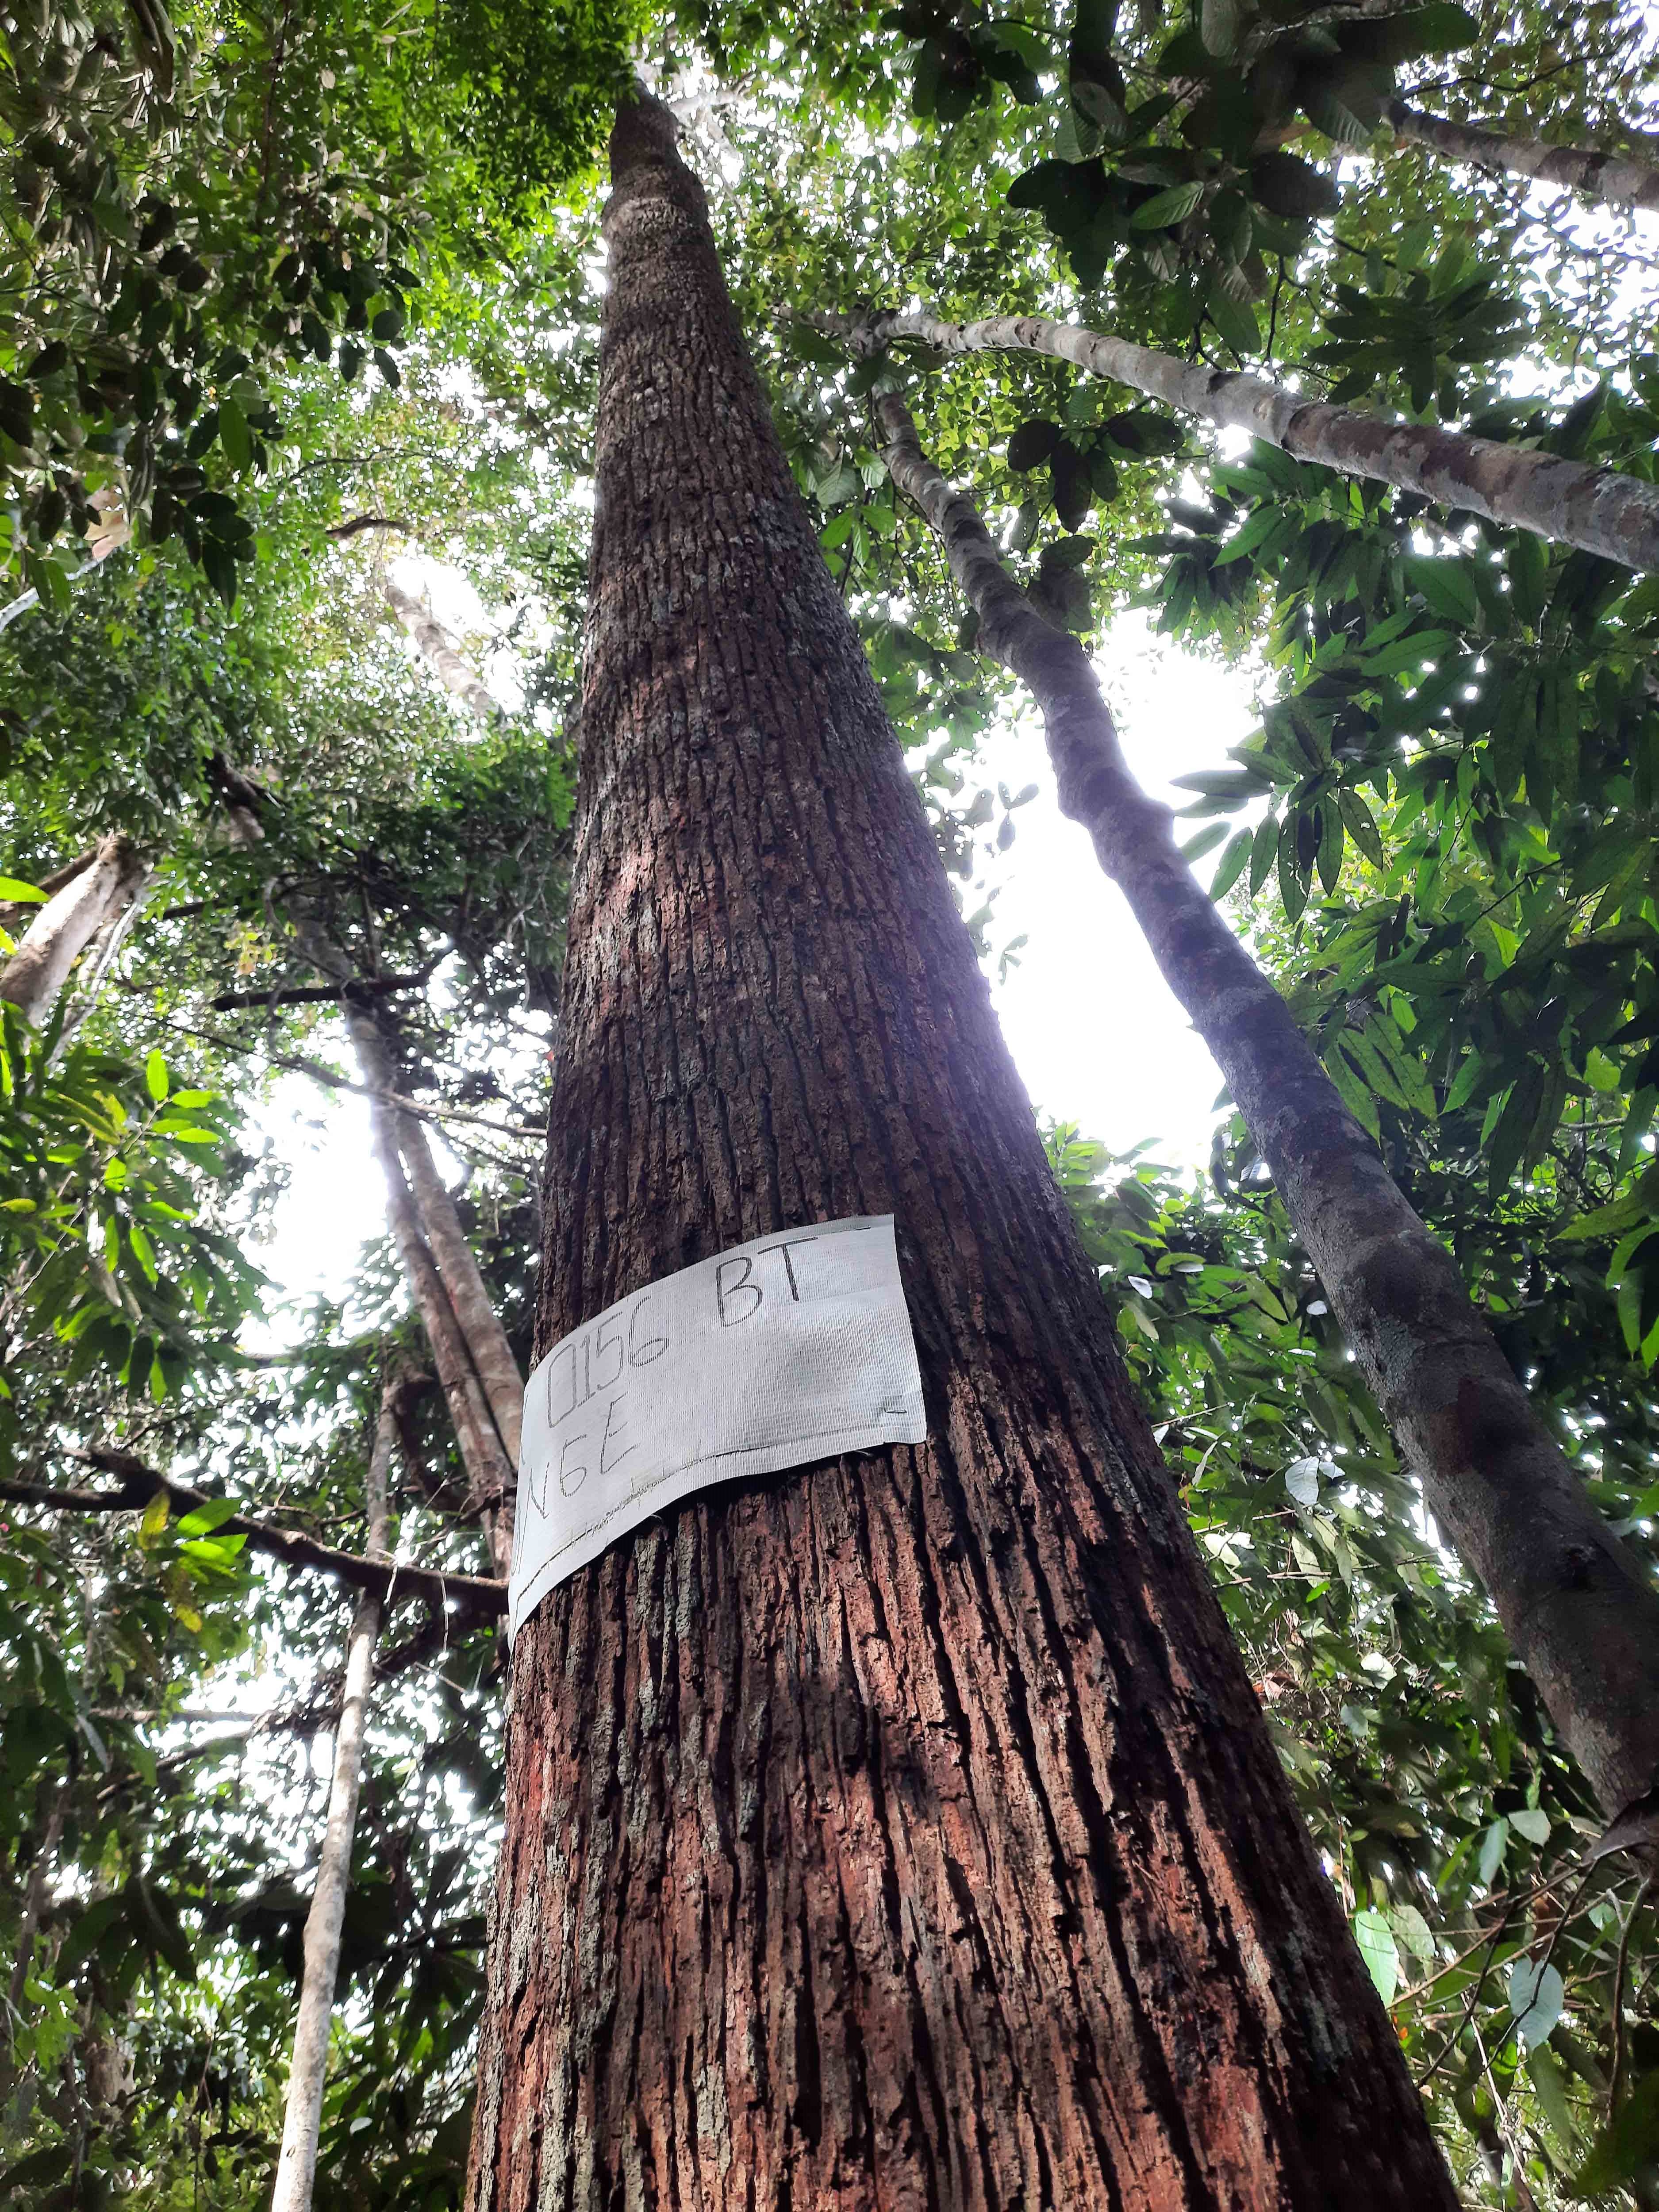 0156 BT
N6E